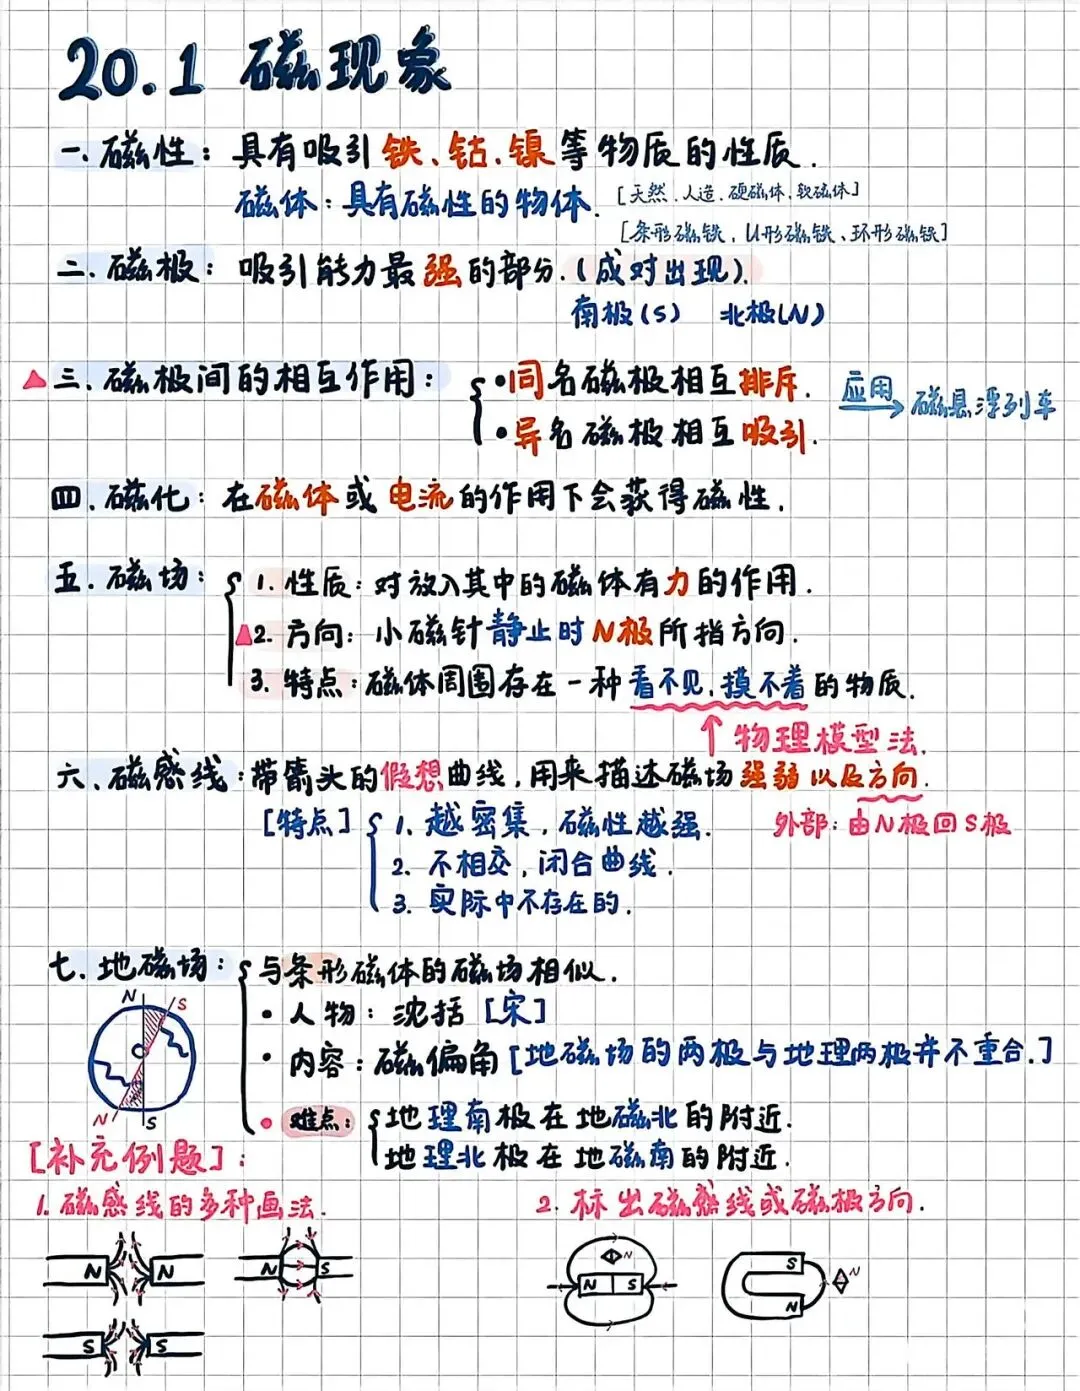 20.1 磁现象
一.磁性：具有吸引铁、钴、镍等物质的性质.
磁体：具有磁性的物体. [天然.人造.硬磁体.软磁体]
[条形磁铁,U形磁铁、环形磁铁]
二.磁极：吸引能力最强的部分.(成对出现).
南极(S) 北极(N)
三.磁极间的相互作用：
•同名磁极相互排斥.
•异名磁极相互吸引.
应用 磁悬浮列车
四.磁化：在磁体或电流的作用下会获得磁性.
五.磁场：
1.性质：对放入其中的磁体有力的作用.
2.方向：小磁针静止时N极所指方向.
3.特点：磁体周围存在一种看不见,摸不着的物质.
物理模型法.
六、磁感线：带箭头的假想曲线,用来描述磁场强弱以及方向.
[特点] 1.越密集,磁性越强. 外部：由N极回S极
2.不相交,闭合曲线.
3.实际中不存在的.
七.地磁场：与条形磁体的磁场相似.
N S
•人物：沈括[宋]
•内容：磁偏角[地磁场的两极与地理两极并不重合.]
N S
•难点：地理南极在地磁北的附近.
地理北极在地磁南的附近.
[补充例题]：
1.磁感线的多种画法.
2.标出磁感线或磁极方向.
N N
N S
S S
N
N S
S N
N